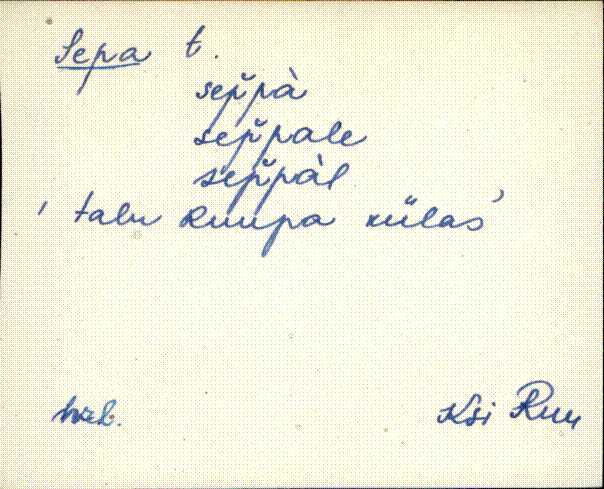 Sepa t.
sep̆pà
sep̆pale
sep̆pàl
' talu Ruupa külas'
Ksi Ruu